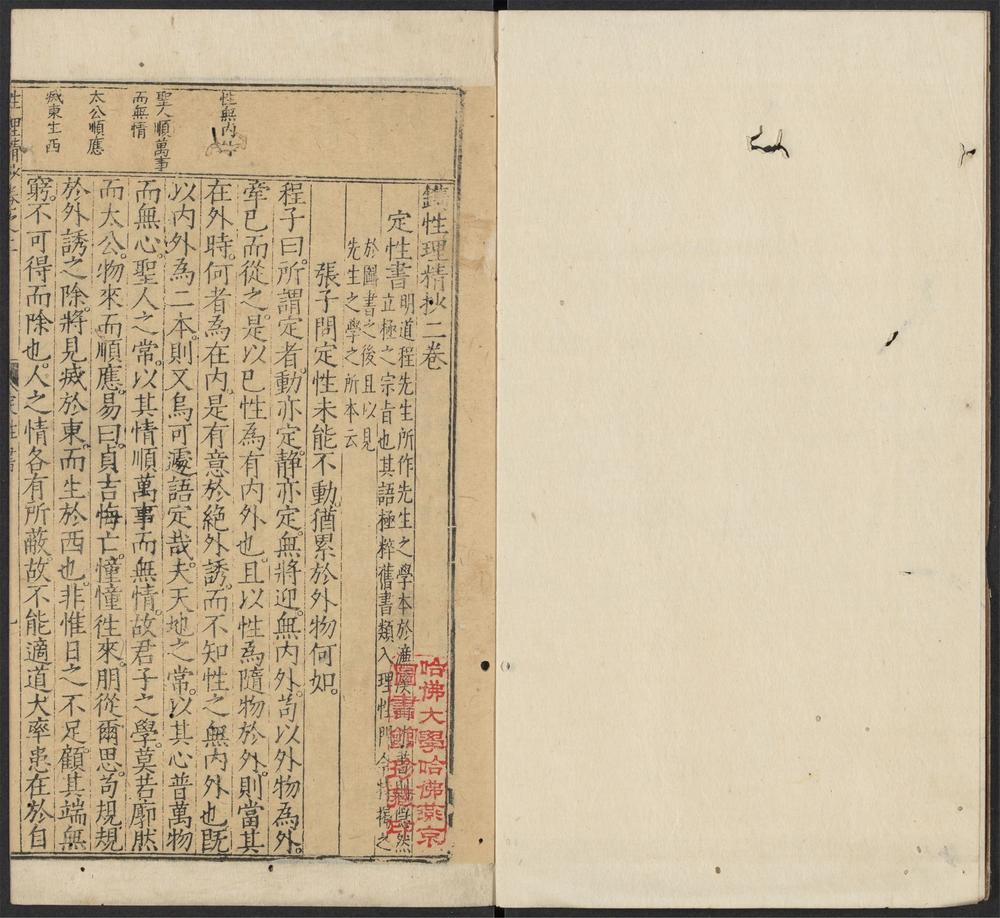 鐫性理精抄二卷
定性書
明道程先生所作先生之學本於濂溪
立極之宗旨也其語極粹舊書類入理性門今特揭之
於圖書之後且以見
先生之學之所本云
張子問定性未能不動。猶累於外物何如。
程子曰。所謂定者。動亦定。静亦定。無將迎。無内外。苟以外物為外。
牽已而從之。是以已性為有内外也。且以性為隨物於外。則當其
在外時。何者為在内。是有意於絶外誘。而不知性之無内外也。既
以内外為二本。則又烏可遽語定哉。夫天地之常。以其心普萬物
而無心。聖人之常。以其情順萬事而無情。故君子之學。莫若廓然
而太公。物來而順應。易曰。貞吉悔亡。憧憧徃來。朋從爾思。苟規規
於外誘之除。將見烕於東。而生於西也。非惟日之不足。顧其端無
窮。不可得而除也。人之情各有所蔽。故不能適道。大率患在於自
性無内外
聖人順萬事
而無情
太公順應
烕東生西
性理精抄卷之二
定性書
哈佛大學哈佛燕京
圖書館珍藏印